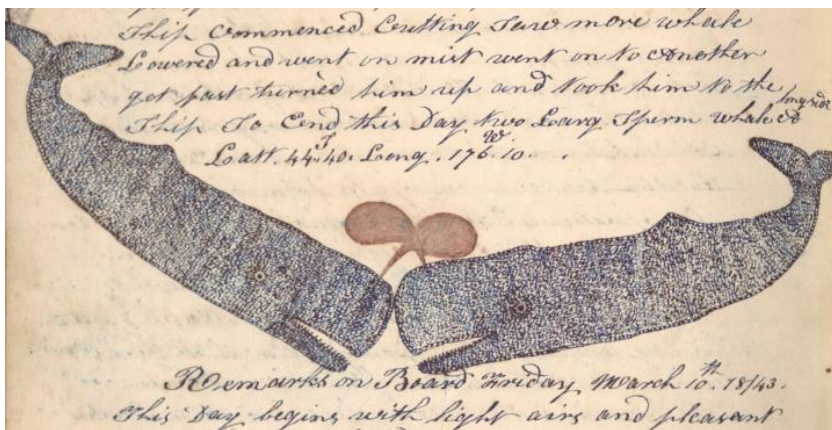 Ship Commenced Cutting Saw more whale
Lowered and went on mist went on to Another
got fast turned him up and took him to the
Ship So End this Day two Larg Sperm whale A longside
Latt. 44.40. S Long. 176.10. W
Remarks on Board Friday March 10th. 1843.
This Day begins with light airs and pleasant